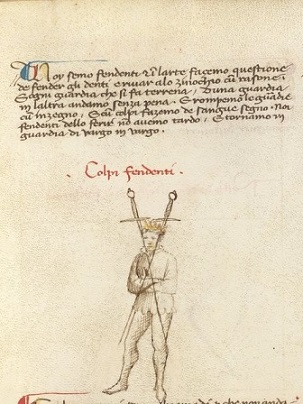 Noy semo fendenti e in larte façemo questione
de fender gli denti e rivar alo zinochio cū rasone.
E ogni guardia che si fa terrena, Duna guardia
in laltra andamo senza pena. E rompemo le guardie
cū inzegno, E cū colpi fazemo de sangue segno. Noi
fendenti dello ferir nō avemo tardo, E tornamo in
guardia di vargo in vargo.
Colpi fendenti.